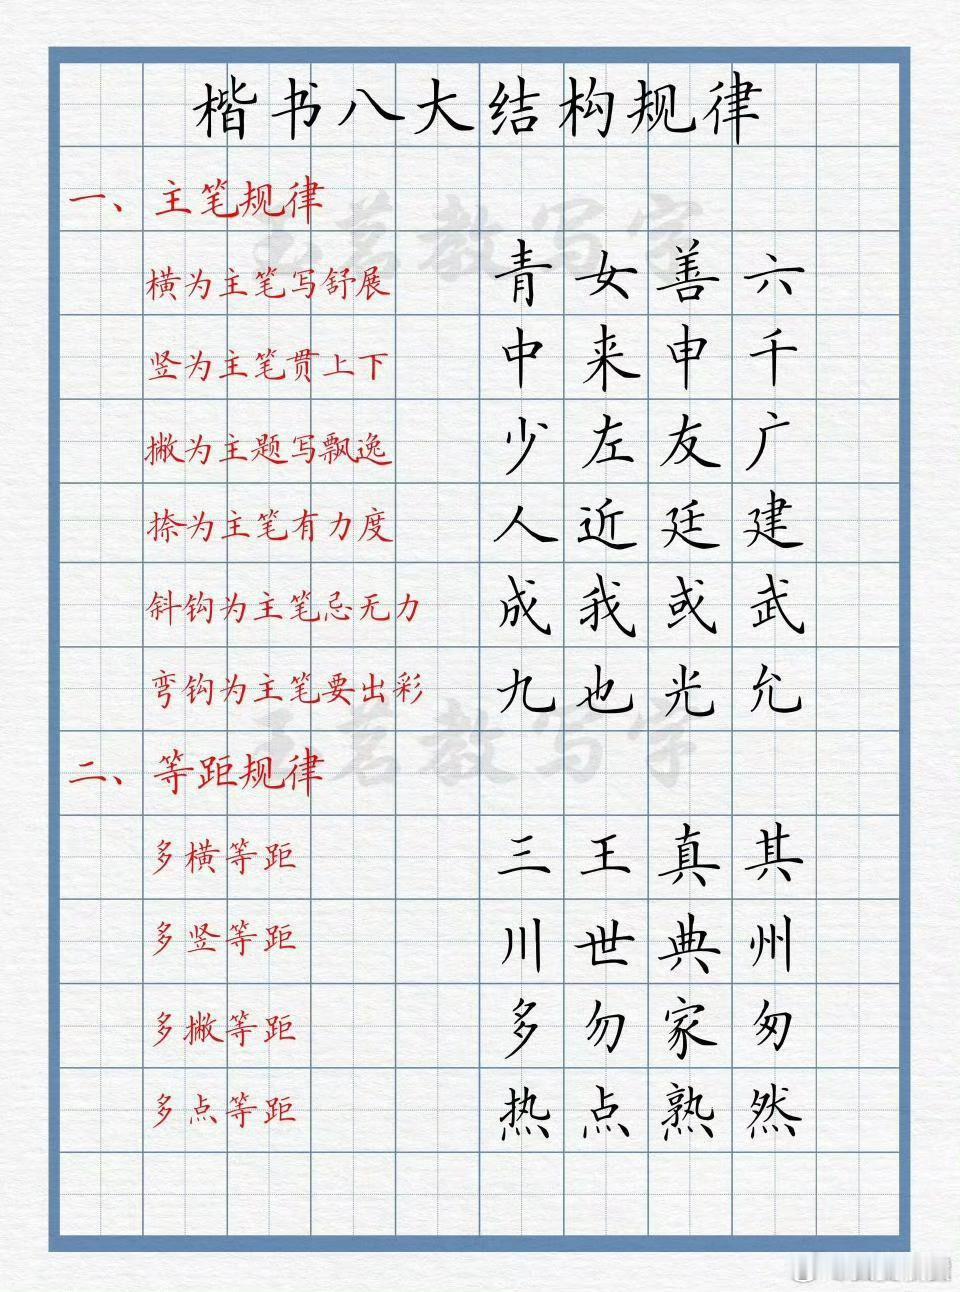 楷书八大结构规律
一、主笔规律
横为主笔写舒展 青女善六
竖为主笔贯上下 中来申千
撇为主题写飘逸 少左友广
捺为主笔有力度 人近廷建
斜钩为主笔忌无力 成我或武
弯钩为主笔要出彩 九也光允
二、等距规律
多横等距 三王真其
多竖等距 川世典州
多撇等距 多勿家匆
多点等距 热点熟然